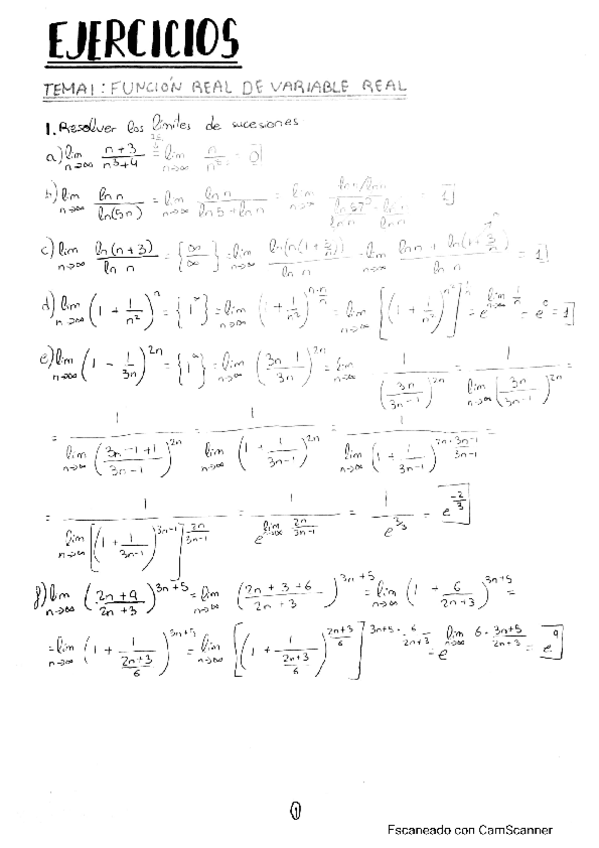 EJERCICIOS
TEMA 1: FUNCIÓN REAL DE VARIABLE REAL
1. Resolver los límites de sucesiones
a) lim n→∞ (n+3)/(n³+4) = lim n→∞ = 0
b) lim n→∞ (ln n)/(ln(5n)) = lim n→∞ (ln n)/(ln 5 + ln n) = lim n→∞ = 1
c) lim n→∞ (ln(n+3))/(ln n) = {∞/∞} = lim n→∞ (ln(n(1+3/n)))/(ln n) = lim n→∞ (ln n + ln(1+3/n))/(ln n) = 1
d) lim n→∞ (1 + 1/n²)^n = {1^∞} = lim n→∞ (1 + 1/n²)^(n·n/n) = lim n→∞ [(1 + 1/n²)^(n²)]^(1/n) = e^(lim n→∞ 1/n) = e^0 = 1
e) lim n→∞ (1 - 1/3n)^(2n) = {1^∞} = lim n→∞ ((3n-1)/3n)^(2n) = lim n→∞ 1/(3n/(3n-1))^(2n) = 1/(lim n→∞ (3n/(3n-1))^(2n)) =
= 1/(lim n→∞ ((3n-1+1)/(3n-1))^(2n)) = 1/(lim n→∞ (1 + 1/(3n-1))^(2n)) = 1/(lim n→∞ (1 + 1/(3n-1))^(2n·(3n-1)/(3n-1))) =
= 1/(lim n→∞ [(1 + 1/(3n-1))^(3n-1)]^(2n/(3n-1))) = 1/e^(lim n→∞ 2n/(3n-1)) = 1/e^(2/3) = e^(-2/3)
f) lim n→∞ ((2n+9)/(2n+3))^(3n+5) = lim n→∞ ((2n+3+6)/(2n+3))^(3n+5) = lim n→∞ (1 + 6/(2n+3))^(3n+5) =
= lim n→∞ (1 + 1/((2n+3)/6))^(3n+5) = lim n→∞ [(1 + 1/((2n+3)/6))^((2n+3)/6)]^(3n+5 · 6/(2n+3)) = e^(lim n→∞ 6·(3n+5)/(2n+3)) = e^9
1
Escaneado con CamScanner